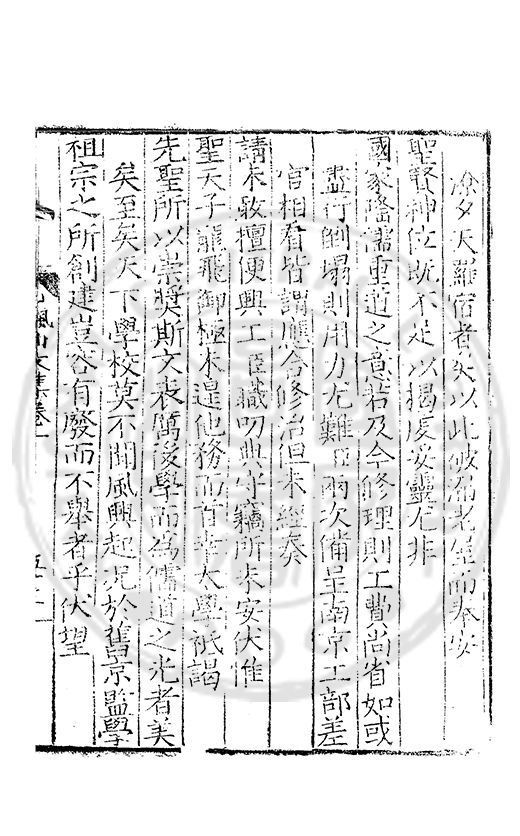 淪夕天羅宿者矣以此破漏老舊而奉安
聖賢神位既不足以揭虔妥靈尤非
國家隆儒重道之意若及今修理則工費尚省如或
盡行倒塌則用力尤難臣兩次備呈南京工部差
官相看皆謂應合修治但未經奏
請未敢擅便興工臣職叨典守竊所未安伏惟
聖天子龍飛御極未遑他務而首幸太學祇謁
先聖所以崇奬斯文表厲後學而為儒道之光者美
矣至矣天下學校莫不聞風興起况於舊京監學
祖宗之所創建豈容有廢而不舉者乎伏望
楓山文集卷一